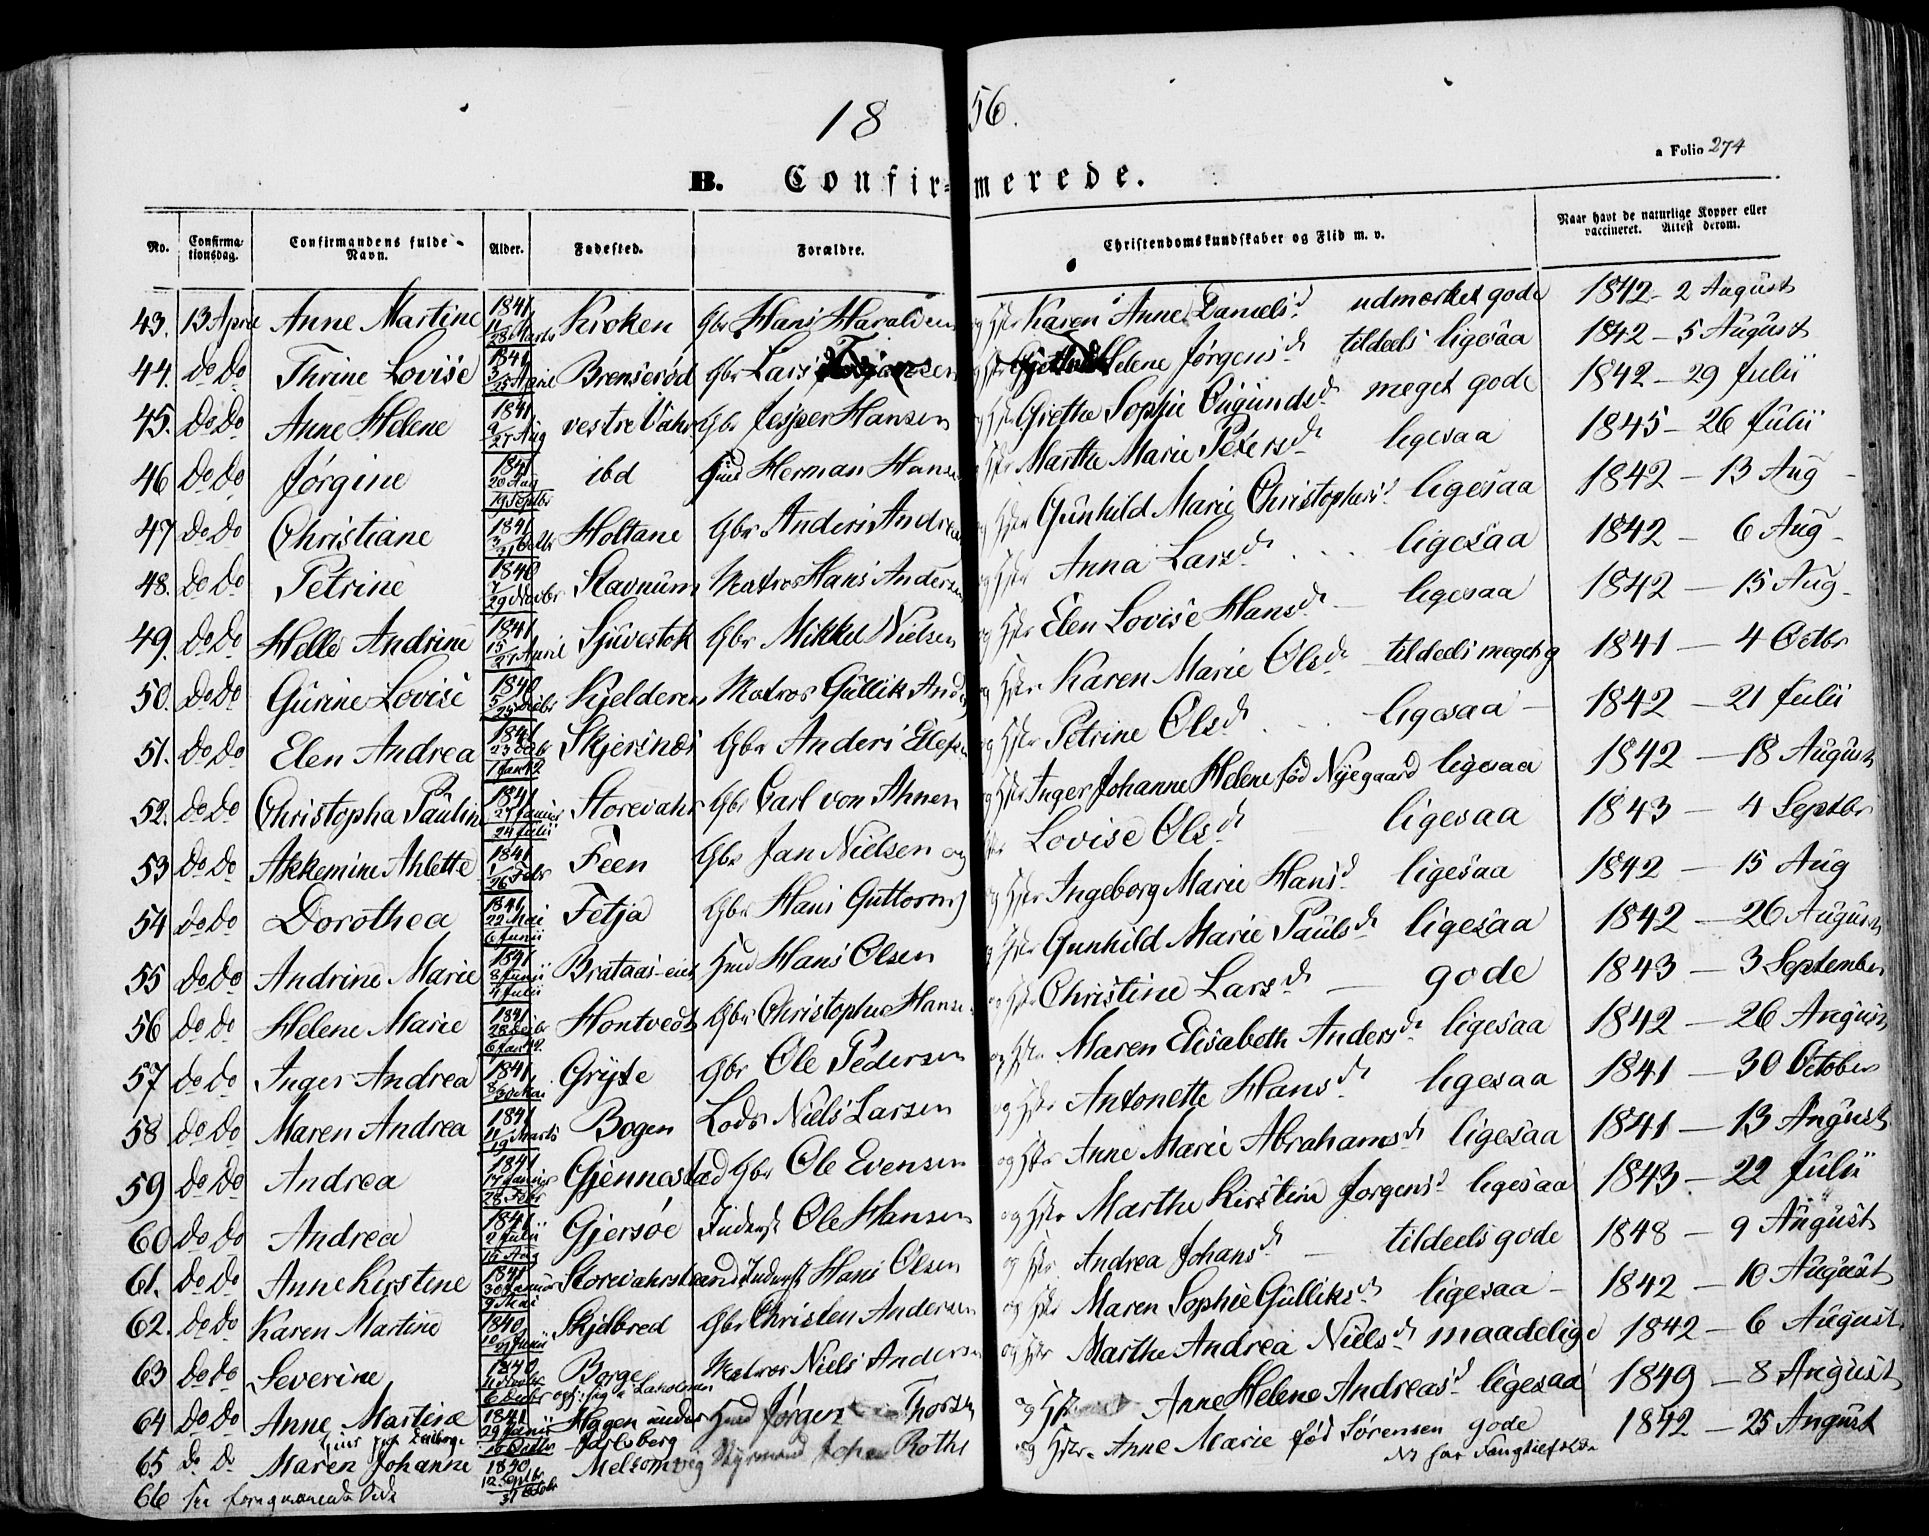 1856.
a Folio 274
B. Confirmerede.
No. Confirmationsdag. Confirmandens fulde Navn. Alder. Fødested. Forældre. Christendomskundskaber og Flid m. v. Naar havt de naturlige Kopper eller vaccineret. Attest derom.
43. 13 April Anne Martine 1841 11 28 Marts Kroken Gbr Hans Haraldsen og Hstr Karen Anne Daniels d udmærket gode 1842 - 2 August
44. Do Do Thrine Lovise 1841 3 25 April Brenserød Gbr Lars Hstr Helene Jørgens d tildeels ligesaa 1842 - 5 August
45. Do Do Anne Helene 1841 9 27 Aug vestre Vahr Gbr Jesper Hansen Hstr Grethe Sophie d meget gode 1842 - 29 Julii
46 Do Do Jørgine 1841 20 Aug 19 Septbr ibd Hmd Herman Hansen Hstr Marthe Marie Peters d ligesaa 1845 - 26 Julii
47 Do Do Christiane 1841 3 31 Octbr Holtane Gbr Anders og Hstr Gunhild Marie Christophers d ligesaa 1842 - 13 Aug
48. Do Do Petrine 1840 7 29 Novbr Stavnum Matros Hans Andersen og Hstr Anna Lars d ligesaa 1842 - 6 Aug
49. Do Do Helle Andrine 1841 15 27 April Sjuvestok Gbr Mikkel Nielsen og Hstr Elen Lovise Hans d ligesaa 1842 - 15 Aug
50. Do Do Gurine Lovise 1840 5 Kjelderen Matros Gullik og Hstr Karen Marie Ols d tildeels meget g 1841 - 4 Octbr
51. Do Do Elen Andrea 1841 23 1 Jan 42 Skjersnes Gbr Anders Ellefsen og Hstr Petrine Ols d ligesaa 1842 - 21 Julii
52. Do Do Christopha Pauline 1841 27 Januar 24 Julii Storevahr Gbr Carl von Ahnen og Hstr Inger Johanne Helene fød Nyegaard ligesaa 1842 - 18 August
53 Do Do Akkemine Ahlette 1841 1 26 Febr Feen Gbr Jan Nielsen og Hstr Lovise Ols d ligesaa 1843 - 4 Septbr
54 Do Do Dorothea 1841 22 Mai 6 Junii Fetja Gbr Hans Guttorms og Hstr Ingeborg Marie Hans d ligesaa 1842 - 15 Aug
55 Do Do Andrine Marie 1841 8 Junii 4 Julii Brataas-eiet Hmd Hans Olsen og Hstr Gunhild Marie Pauls d ligesaa 1842 - 26 August
56 Do Do Helene Marie 1841 28 6 Jan 42. Hontvedt Gbr Christopher Hansen og Hstr Christine Lars d gode 1843 - 3 September
57 Do Do Inger Andrea 1841 8 30 Mai Gryte Gbr Ole Pedersen og Hstr Maren Elisabeth Anders d ligesaa 1842 - 26 August
58 Do Do Maren Andrea 1841 11 19 Marts Bogen Lods Niels Larsen og Hstr Antonette Hans d ligesaa 1841 - 30 October
59 Do Do Andrea 1841 17 Januar 28 Febr Gjennestad Gbr Ole Evensen og Hstr Anne Marie Abrahams d ligesaa 1841 - 13 August
60 Do Do Andrea 1841 2 Julii 15 Aug Gjersøe Inderst Ole Hansen og Hstr Marthe Kirstine Jørgens d ligesaa 1843 - 22 Julii
61. Do Do Anne Kirstine 1841 30 Januar 9 Mai Storevahrstrand Inderst Hans Olsen og Hstr Andrea Johans d tildeels gode 1848 - 9 August
62. Do Do Karen Martine 1840 10 21 Junii Skjelbred Gbr Christen Andersen og Hstr Maren Sophie Gulliks d ligesaa 1842 - 10 August
63 Do Do Severine 1840 11 Novbr 6 Decbr Borge Matros Niels Andersen og Hstr Marthe Andrea Niels d maadelige 1842 - 6 August
64 Do Do Anne Martine 1841 29 Junii Hagen under Jarlsberg Hmd Jørgen Thorsen og Hstr Anne Helene Andreas d ligesaa 1849 - 8 August
65 Do Do Maren Johanne 1840 12 Septbr 31 Octobr Melsomvig Styrmand Johan Roths og Hstr Anne Marie fød Sørensen gode 1842 - 25 August
66 see foregaaende Side